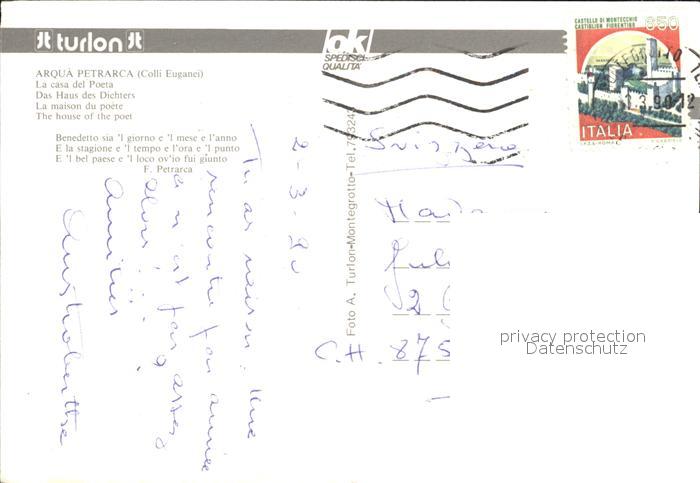 turlon
ok
SPEDISCI
QUALITA'
CASTELLO DI MONTECCHIO
CASTIGLION FIORENTINO
650
ITALIA
ARQUÀ PETRARCA (Colli Euganei)
La casa del Poeta
Das Haus des Dichters
La maison du poète
The house of the poet
Benedetto sia 'l giorno e 'l mese e l'anno
E la stagione e 'l tempo e l'ora e 'l punto
E 'l bel paese e 'l loco ov'io fui giunto
F. Petrarca
Foto A. Turlon-Montegrotto-Tel.
2-3-90
Tu as raison. Une
rencontre par année
ce n'est pas assez
Alors!!!
Amitiés
Svizzera
CH. 875
privacy protection
Datenschutz